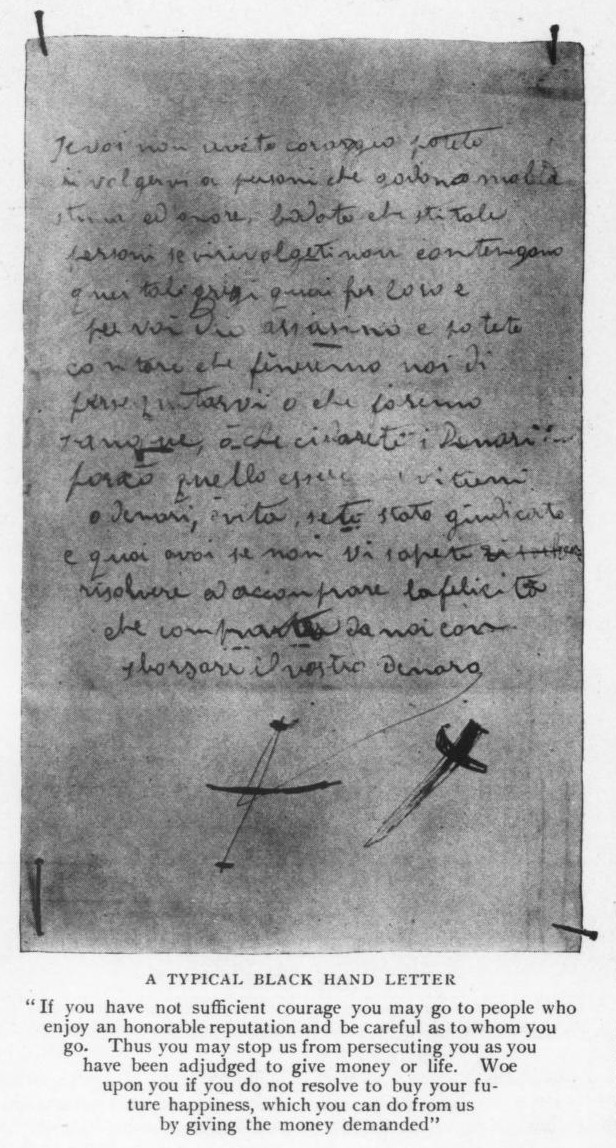 Se voi non avete coraggio potete
rivolgervi a personi che godono
stima ed onore, badate che
personi se vi rivolgeti non contengano
quai per loro e
per voi Dio assasino e potete
contare che fineremo noi di
o che faremo
sangue, o che ci dareti i Denari
quello essere
o denari, o vita, sete stato giudicato
e quai avoi se non vi sapeti
risolvere ad accomprare la felicità
che da noi con
sborsare il vostro denaro
A TYPICAL BLACK HAND LETTER
“If you have not sufficient courage you may go to people who
enjoy an honorable reputation and be careful as to whom you
go. Thus you may stop us from persecuting you as you
have been adjudged to give money or life. Woe
upon you if you do not resolve to buy your fu-
ture happiness, which you can do from us
by giving the money demanded”